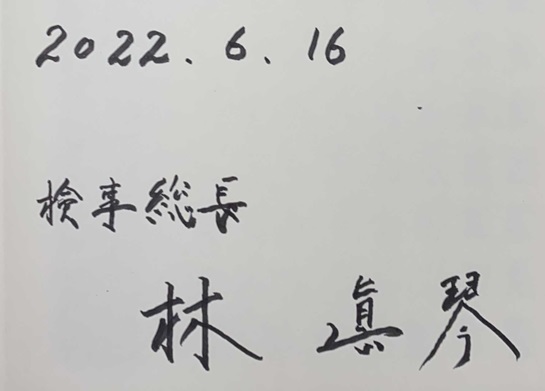 2022. 6. 16
検事総長
林 眞琴